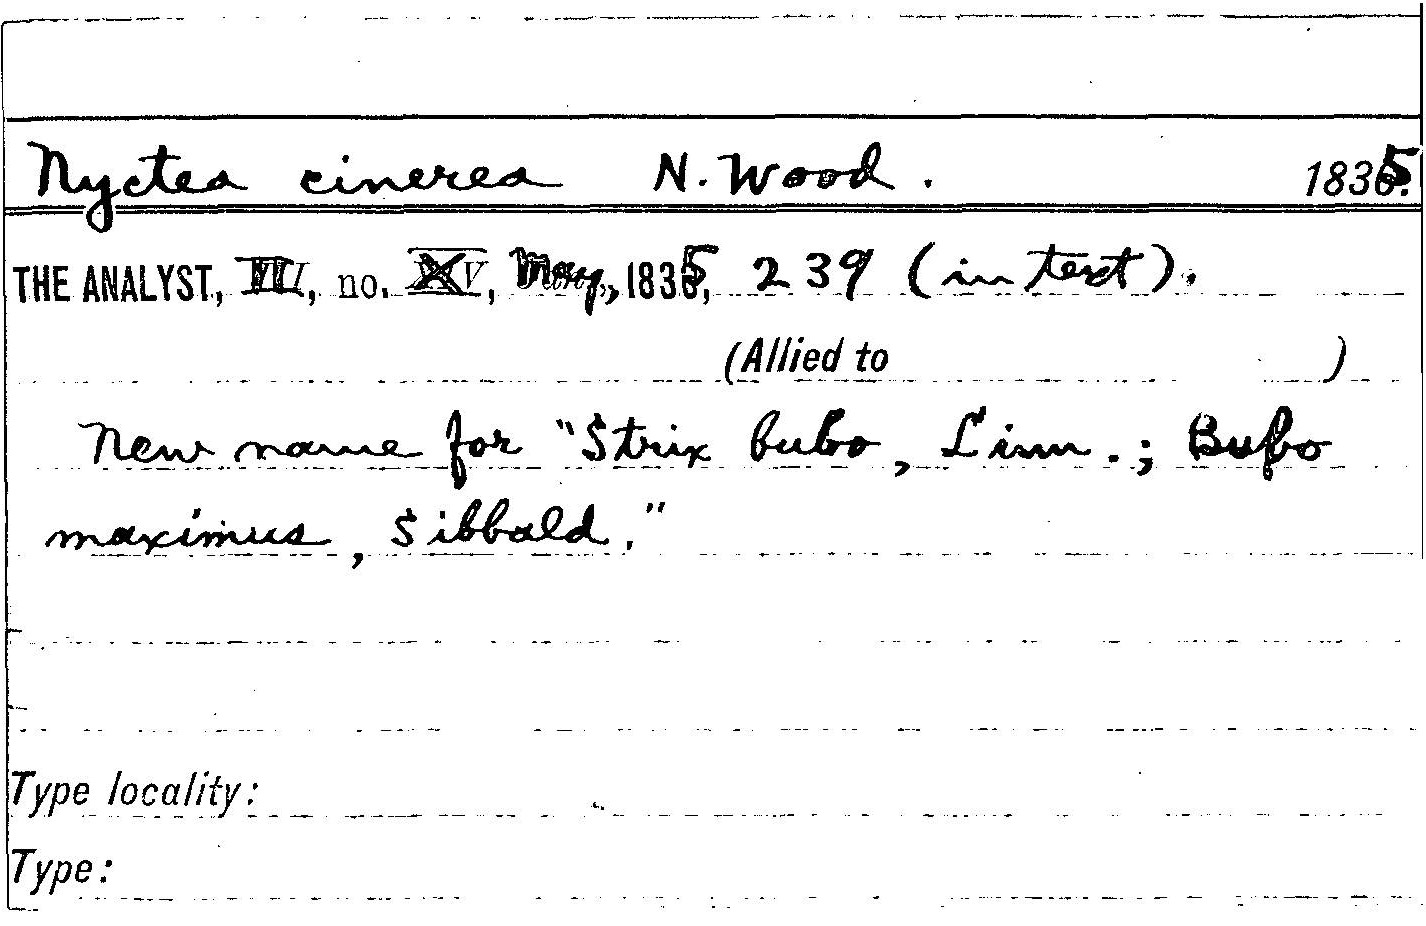 Nyctea cinerea N. Wood. 1835.
THE ANALYST, III, no. XV, May, 1835, 239 (in text).
(Allied to )
New name for "Strix bubo, Linn.; Bubo
maximus, Sibbald."
Type locality:
Type: